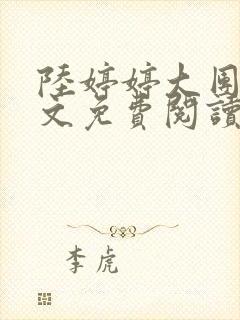 陸婷婷大圍
文免費閱讀
李虎